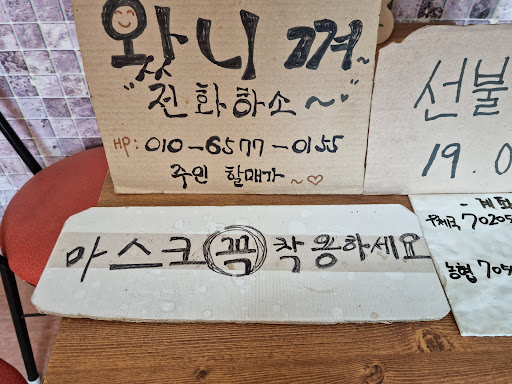 왔니껴~
"전화하소~"
HP: 010-6577-0155
주인 할매가~♡
선불
19.0
마스크 꼭 착용하세요
70205
농협 705